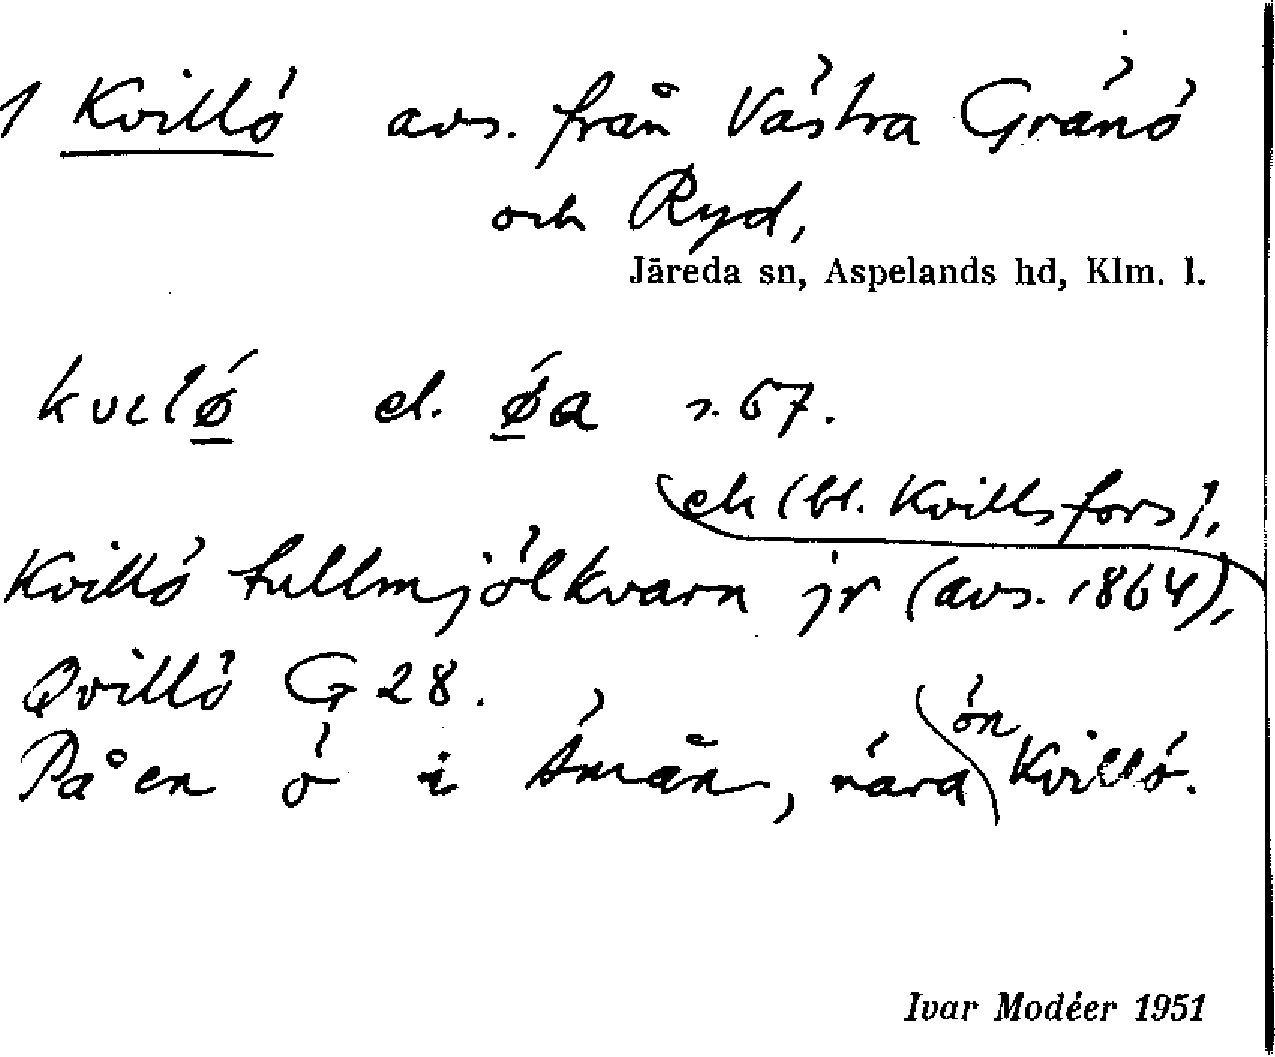 1 Kvillö avs. från Västra Gränö
och Ryd,
Järeda sn, Aspelands hd, Klm. l.
kvɩlø el. øa s. 67.
ek (bl. Kvillsfors),
Kvillö tullmjölkvarn jr (avs. 1864),
Qvillö G 28.
På en ö i Emån, nära ön Kvillö.
Ivar Modéer 1951